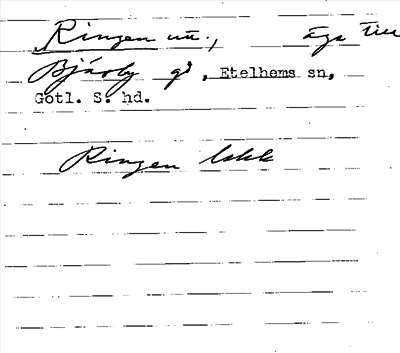 Ringen utt., äga till
Bjärby gd, Etelhems sn,
Gotl. S. hd.
Ringen lskk